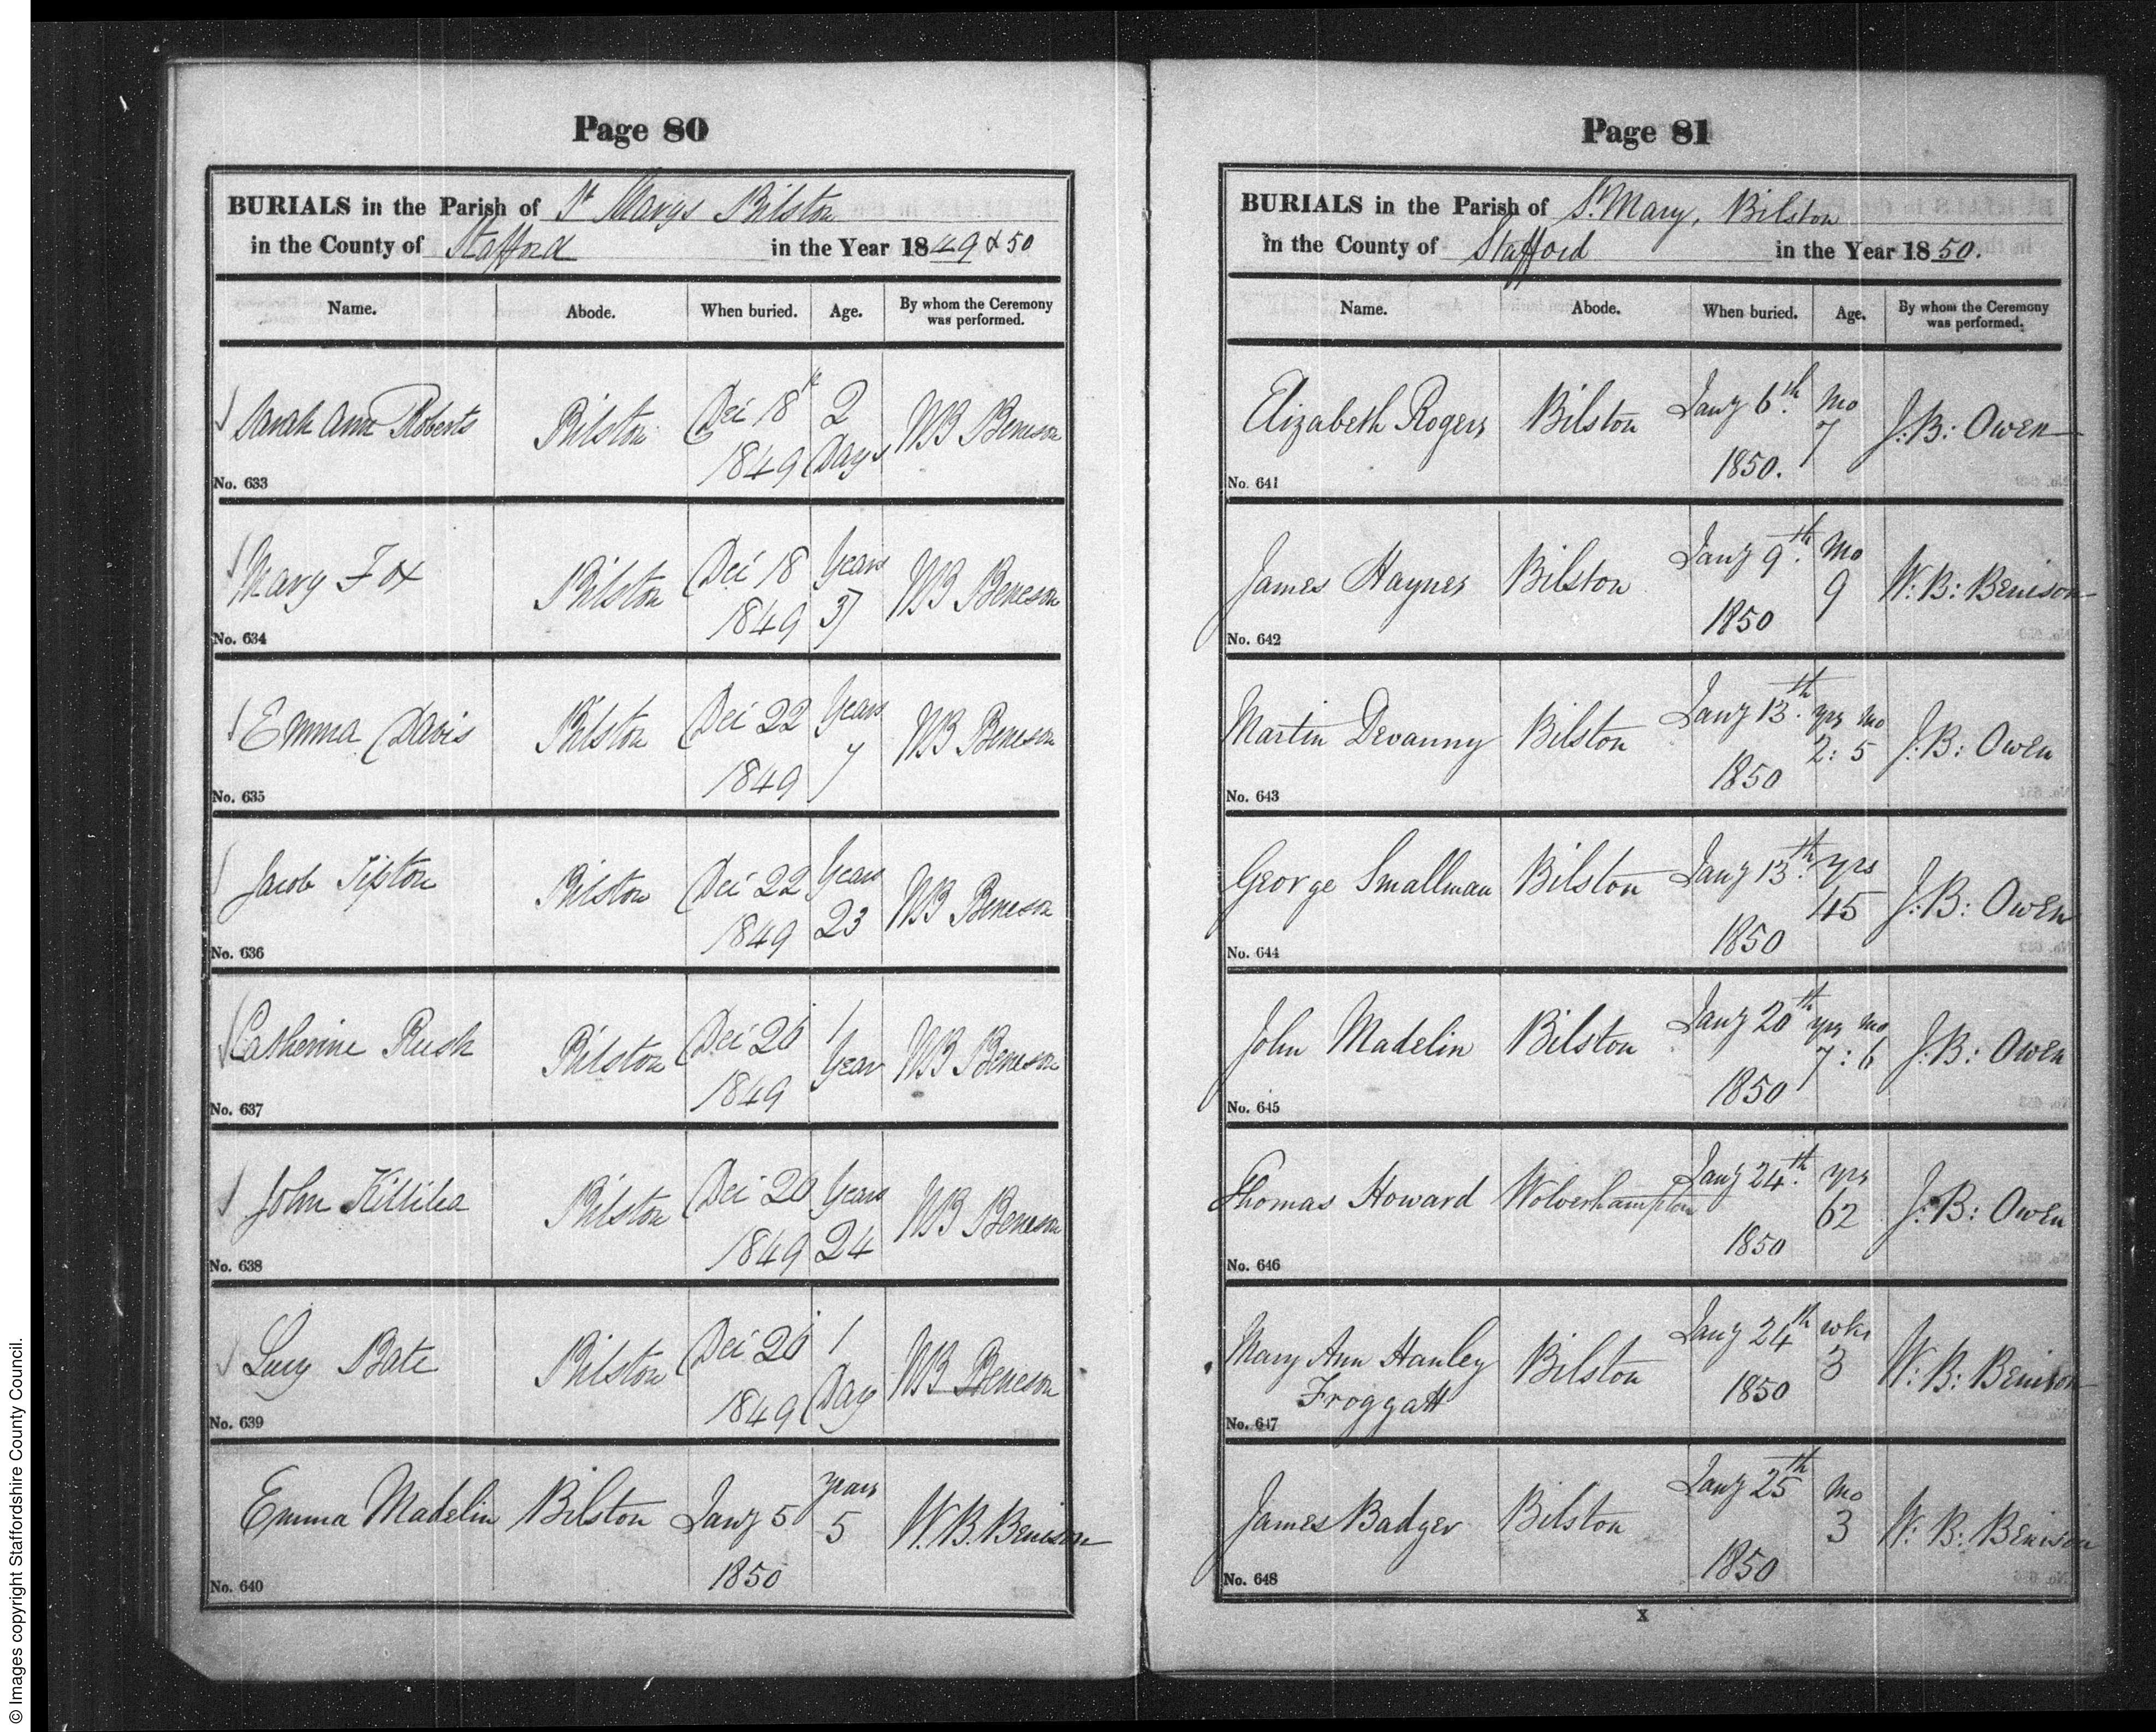 Page 80
BURIALS in the Parish of St Marys Bilston
in the County of Stafford in the Year 1849 & 50
Name. Abode. When buried. Age. By whom the Ceremony was performed.
Sarah Ann Roberts Bilston Dec 18th 2
1849 Days WB Beneson
No. 633
Mary Fox Bilston Dec 18 Years
1849 37 WB Beneson
No. 634
Emma Davis Bilston Dec 22 Years
1849 7 WB Beneson
No. 635
Jacob Tipton Bilston Dec 22 Years
1849 23 WB Beneson
No. 636
Catherine Rush Bilston Dec 26 1
1849 Year WB Beneson
No. 637
John Killilea Bilston Dec 26 Years
1849 24 WB Beneson
No. 638
Lucy Bate Bilston Dec 26 1
1849 Day WB Beneson
No. 639
Emma Madelin Bilston Jany 5 years
1850 5 W. B. Benison
No. 640
Page 81
BURIALS in the Parish of St. Mary, Bilston
in the County of Stafford in the Year 1850.
Name. Abode. When buried. Age. By whom the Ceremony was performed.
Elizabeth Rogers Bilston Jany 6th. Mo
1850. 7 J: B: Owen
No. 641
James Haynes Bilston Jany 9th. Mo
1850 9 W: B: Benison
No. 642
Martin Devanny Bilston Jany 13th. yrs mo
1850 2: 5 J: B: Owen
No. 643
George Smallman Bilston Jany 13th. yrs
1850 45 J: B: Owen
No. 644
John Madelin Bilston Jany 20th yrs mo
1850 7: 6 J: B: Owen
No. 645
Thomas Howard Wolverhampton Jany 24th. yrs
1850 62 J: B: Owen
No. 646
Mary Ann Hanley Bilston Jany 24th wks
Froggatt 1850 3 W: B: Benison
No. 647
James Badger Bilston Jany 25th Mo
1850 3 W: B: Benison
No. 648
X
© Images copyright Staffordshire County Council.